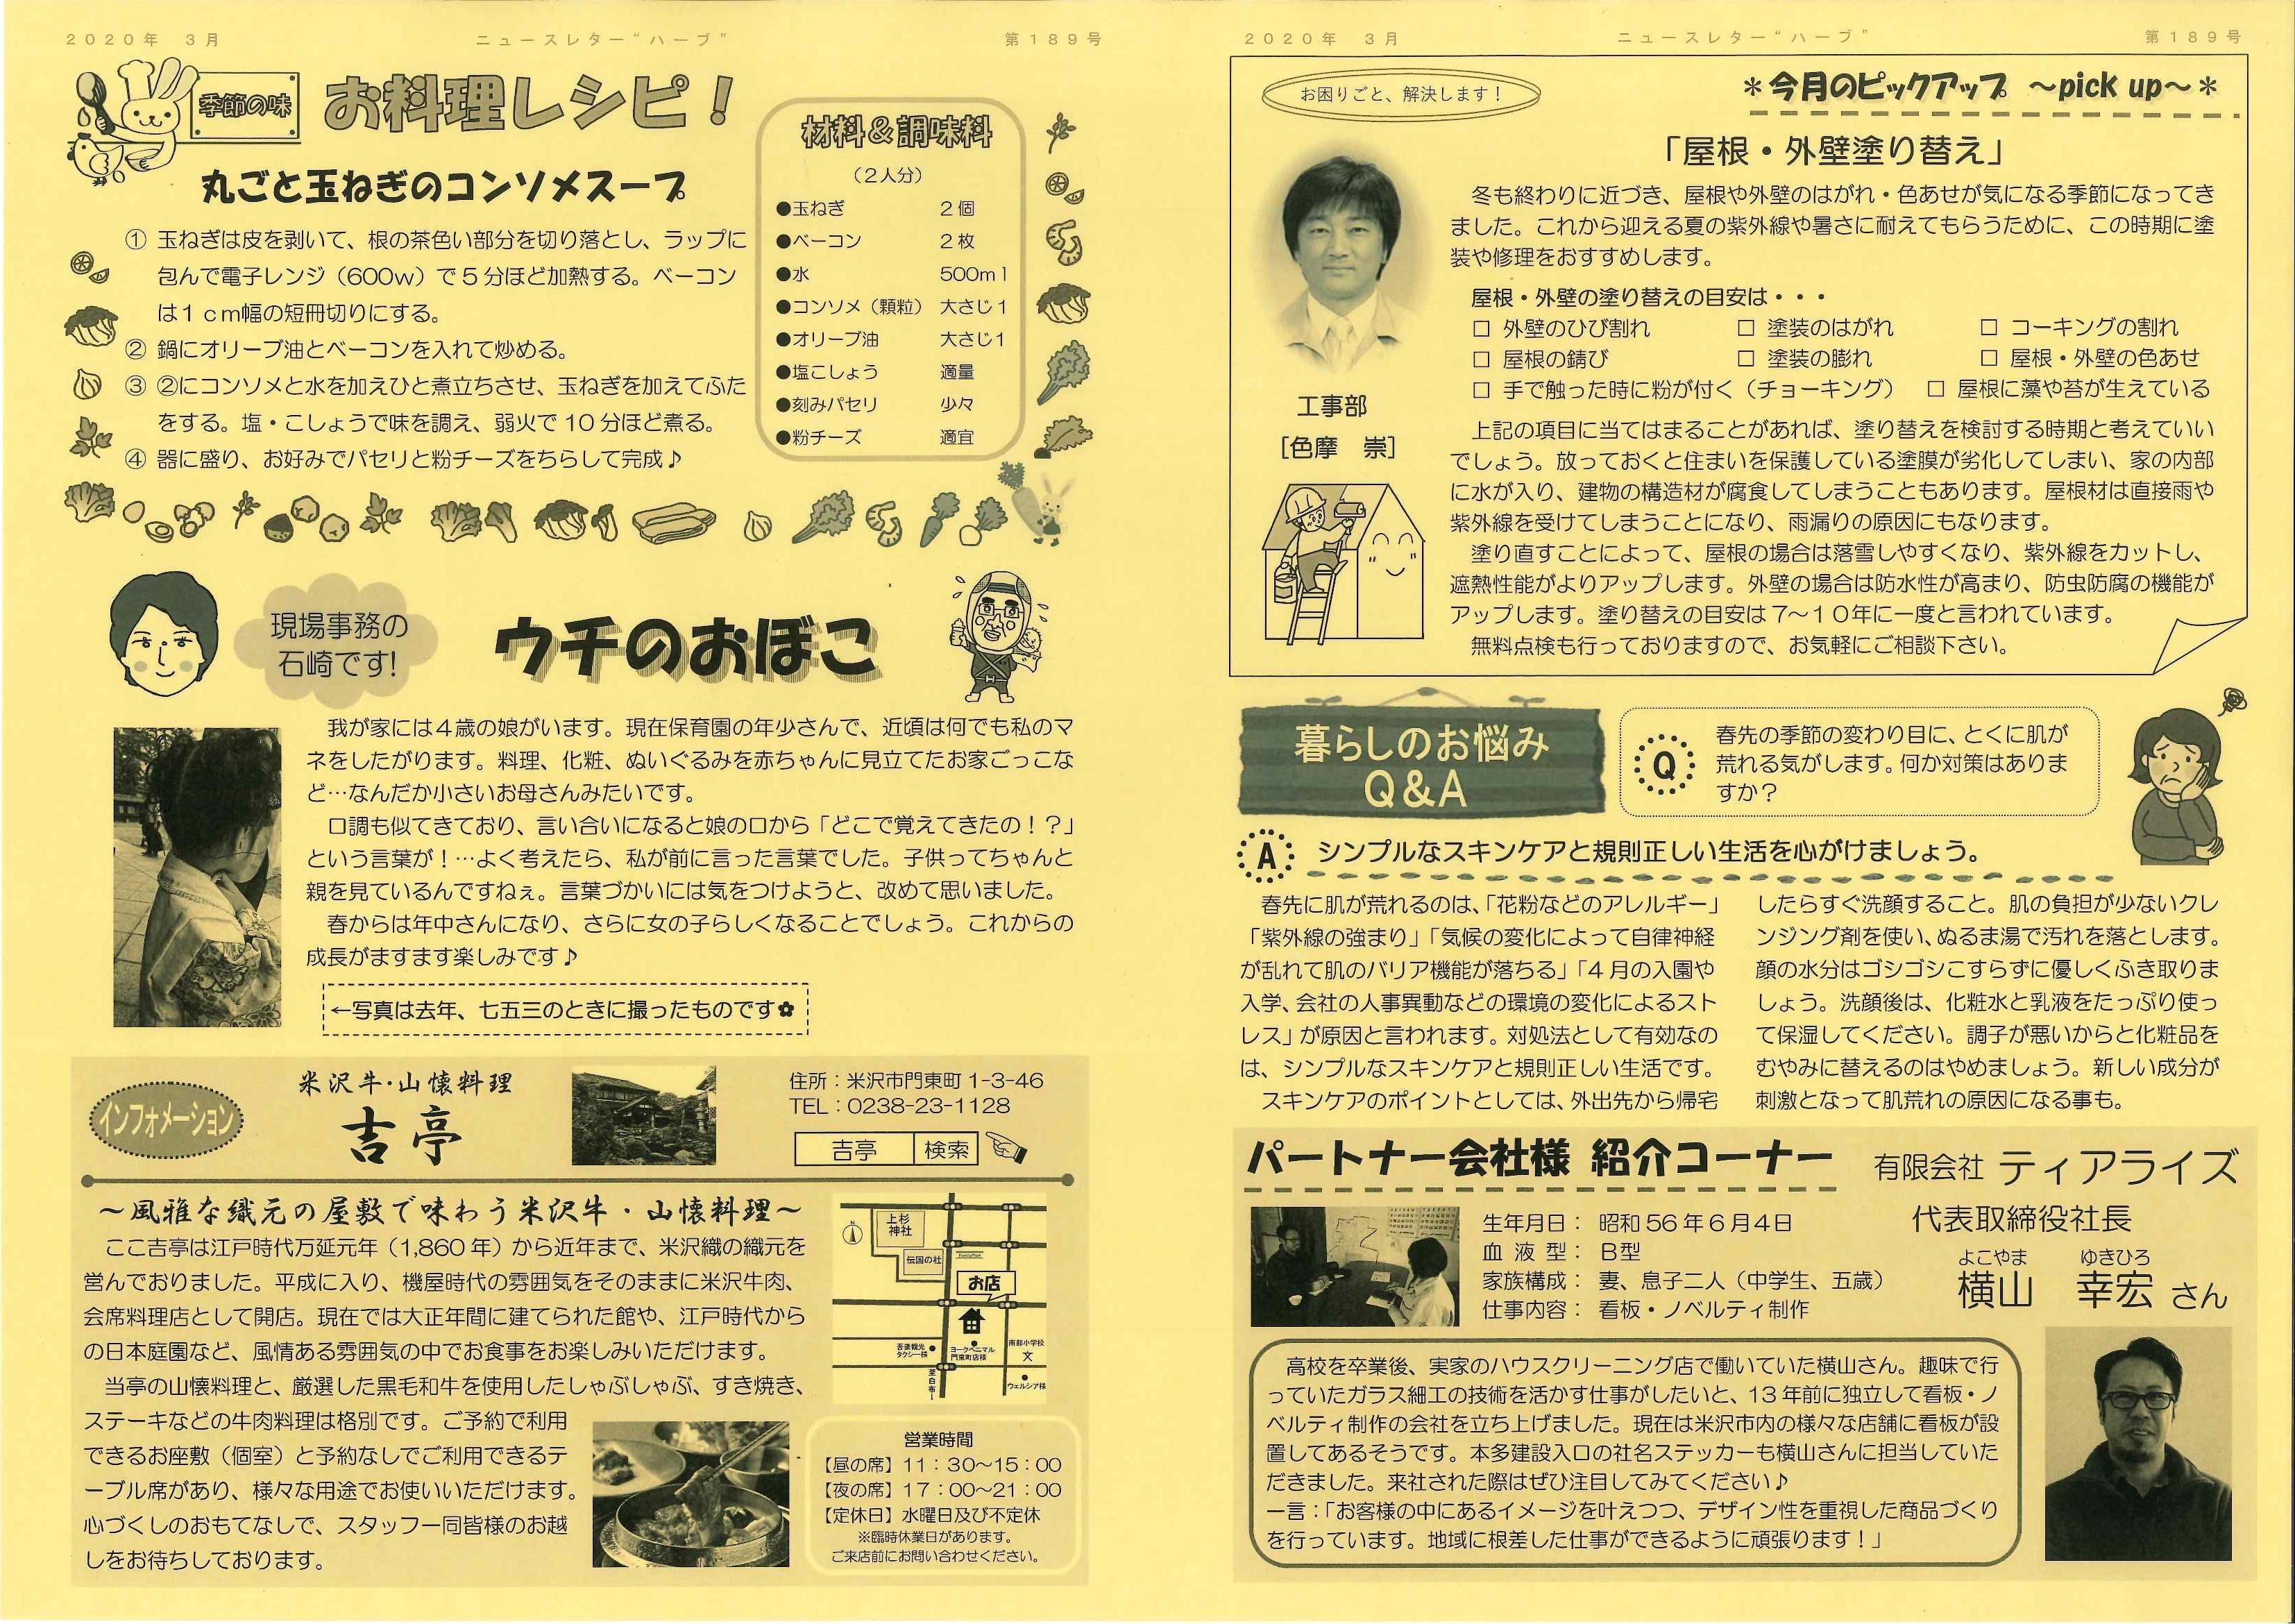 2020年 3月
ニュースレター“ハーブ”
第189号
季節の味
お料理レシピ！
丸ごと玉ねぎのコンソメスープ
① 玉ねぎは皮を剥いて、根の茶色い部分を切り落とし、ラップに
包んで電子レンジ（600w）で5分ほど加熱する。ベーコン
は1cm幅の短冊切りにする。
② 鍋にオリーブ油とベーコンを入れて炒める。
③ ②にコンソメと水を加えひと煮立ちさせ、玉ねぎを加えてふた
をする。塩・こしょうで味を調え、弱火で10分ほど煮る。
④ 器に盛り、お好みでパセリと粉チーズをちらして完成♪
材料&調味料
（2人分）
●玉ねぎ 2個
●ベーコン 2枚
●水 500ml
●コンソメ（顆粒） 大さじ1
●オリーブ油 大さじ1
●塩こしょう 適量
●刻みパセリ 少々
●粉チーズ 適宜
現場事務の
石崎です!
ウチのおぼこ
我が家には4歳の娘がいます。現在保育園の年少さんで、近頃は何でも私のマ
ネをしたがります。料理、化粧、ぬいぐるみを赤ちゃんに見立てたお家ごっこな
ど…なんだか小さいお母さんみたいです。
口調も似てきており、言い合いになると娘の口から「どこで覚えてきたの！？」
という言葉が！…よく考えたら、私が前に言った言葉でした。子供ってちゃんと
親を見ているんですねぇ。言葉づかいには気をつけようと、改めて思いました。
春からは年中さんになり、さらに女の子らしくなることでしょう。これからの
成長がますます楽しみです♪
←写真は去年、七五三のときに撮ったものです✿
インフォメーション
米沢牛・山懐料理
吉亭
住所：米沢市門東町1-3-46
TEL：0238-23-1128
吉亭 検索
～風雅な織元の屋敷で味わう米沢牛・山懐料理～
ここ吉亭は江戸時代万延元年（1,860年）から近年まで、米沢織の織元を
営んでおりました。平成に入り、機屋時代の雰囲気をそのままに米沢牛肉、
会席料理店として開店。現在では大正年間に建てられた館や、江戸時代から
の日本庭園など、風情ある雰囲気の中でお食事をお楽しみいただけます。
当亭の山懐料理と、厳選した黒毛和牛を使用したしゃぶしゃぶ、すき焼き、
ステーキなどの牛肉料理は格別です。ご予約で利用
できるお座敷（個室）と予約なしでご利用できるテ
ーブル席があり、様々な用途でお使いいただけます。
心づくしのおもてなしで、スタッフ一同皆様のお越
しをお待ちしております。
N
上杉
神社
伝国の杜
FamilyMart
お店
吾妻観光
タクシー様
ヨークベニマル
門東町店様
南部小学校
文
至白布
ウェルシア様
営業時間
【昼の席】11：30～15：00
【夜の席】17：00～21：00
【定休日】水曜日及び不定休
※臨時休業日があります。
ご来店前にお問い合わせください。
2020年 3月
ニュースレター“ハーブ”
第189号
お困りごと、解決します！
＊今月のピックアップ ～pick up～＊
「屋根・外壁塗り替え」
工事部
[色摩 崇]
冬も終わりに近づき、屋根や外壁のはがれ・色あせが気になる季節になってき
ました。これから迎える夏の紫外線や暑さに耐えてもらうために、この時期に塗
装や修理をおすすめします。
屋根・外壁の塗り替えの目安は・・・
□ 外壁のひび割れ □ 塗装のはがれ □ コーキングの割れ
□ 屋根の錆び □ 塗装の膨れ □ 屋根・外壁の色あせ
□ 手で触った時に粉が付く（チョーキング） □ 屋根に藻や苔が生えている
上記の項目に当てはまることがあれば、塗り替えを検討する時期と考えていい
でしょう。放っておくと住まいを保護している塗膜が劣化してしまい、家の内部
に水が入り、建物の構造材が腐食してしまうこともあります。屋根材は直接雨や
紫外線を受けてしまうことになり、雨漏りの原因にもなります。
塗り直すことによって、屋根の場合は落雪しやすくなり、紫外線をカットし、
遮熱性能がよりアップします。外壁の場合は防水性が高まり、防虫防腐の機能が
アップします。塗り替えの目安は7～10年に一度と言われています。
無料点検も行っておりますので、お気軽にご相談下さい。
暮らしのお悩み
Q&A
Q
春先の季節の変わり目に、とくに肌が
荒れる気がします。何か対策はありま
すか？
A
シンプルなスキンケアと規則正しい生活を心がけましょう。
春先に肌が荒れるのは、「花粉などのアレルギー」
「紫外線の強まり」「気候の変化によって自律神経
が乱れて肌のバリア機能が落ちる」「4月の入園や
入学、会社の人事異動などの環境の変化によるスト
レス」が原因と言われます。対処法として有効なの
は、シンプルなスキンケアと規則正しい生活です。
スキンケアのポイントとしては、外出先から帰宅
したらすぐ洗顔すること。肌の負担が少ないクレ
ンジング剤を使い、ぬるま湯で汚れを落とします。
顔の水分はゴシゴシこすらずに優しくふき取りま
しょう。洗顔後は、化粧水と乳液をたっぷり使っ
て保湿してください。調子が悪いからと化粧品を
むやみに替えるのはやめましょう。新しい成分が
刺激となって肌荒れの原因になる事も。
パートナー会社様 紹介コーナー
有限会社 ティアライズ
代表取締役社長
よこやま ゆきひろ
横山 幸宏 さん
生年月日： 昭和56年6月4日
血液型： B型
家族構成： 妻、息子二人（中学生、五歳）
仕事内容： 看板・ノベルティ制作
高校を卒業後、実家のハウスクリーニング店で働いていた横山さん。趣味で行
っていたガラス細工の技術を活かす仕事がしたいと、13年前に独立して看板・ノ
ベルティ制作の会社を立ち上げました。現在は米沢市内の様々な店舗に看板が設
置してあるそうです。本多建設入口の社名ステッカーも横山さんに担当していた
だきました。来社された際はぜひ注目してみてください♪
一言：「お客様の中にあるイメージを叶えつつ、デザイン性を重視した商品づくり
を行っています。地域に根差した仕事ができるように頑張ります！」